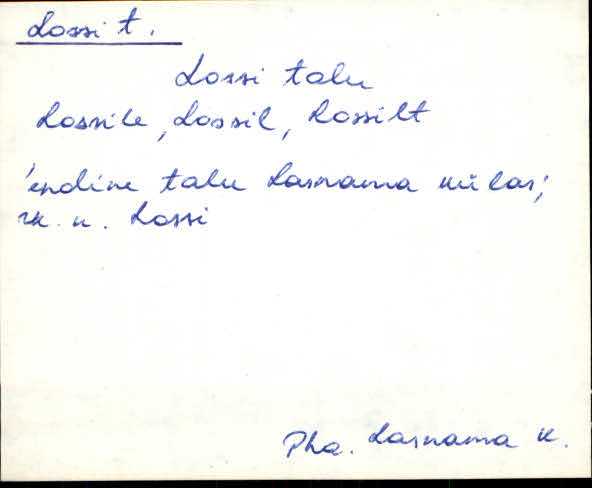 Lossi t.
Lossi talu
Lossile, Lossil, Lossilt
'endine talu Lasnama külas;
rk. n. Lossi
Pha. Lasnama k.